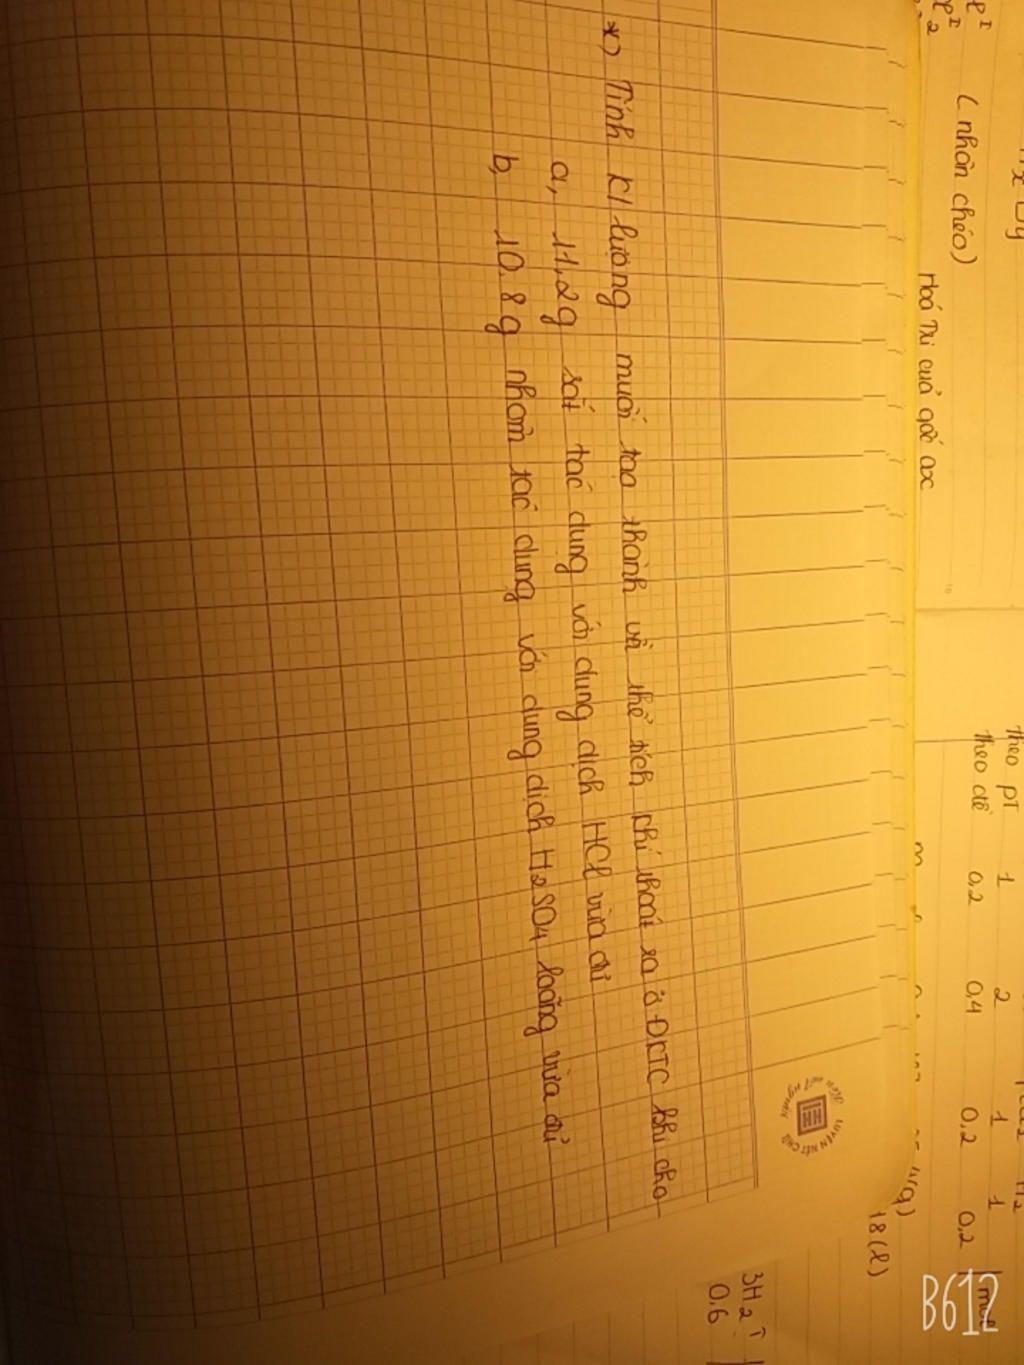 *) Tính kl lường muối tạo thành và thể tích khí thoát ra ở ĐKTC khi cho
a, 11,2g sắt tác dụng với dung dịch HCl vừa đủ
b, 10.8g nhôm tác dụng với dung dịch H2SO4 loãng vừa đủ
(nhân chéo)
Hoá Trị của gốc
Theo PT 1 2 1 1
Theo đề 0,2 0,4 0,2 0,2 | mol
18(l)
3H2↑
0,6
LUYỆN NÉT CHỮ
B612